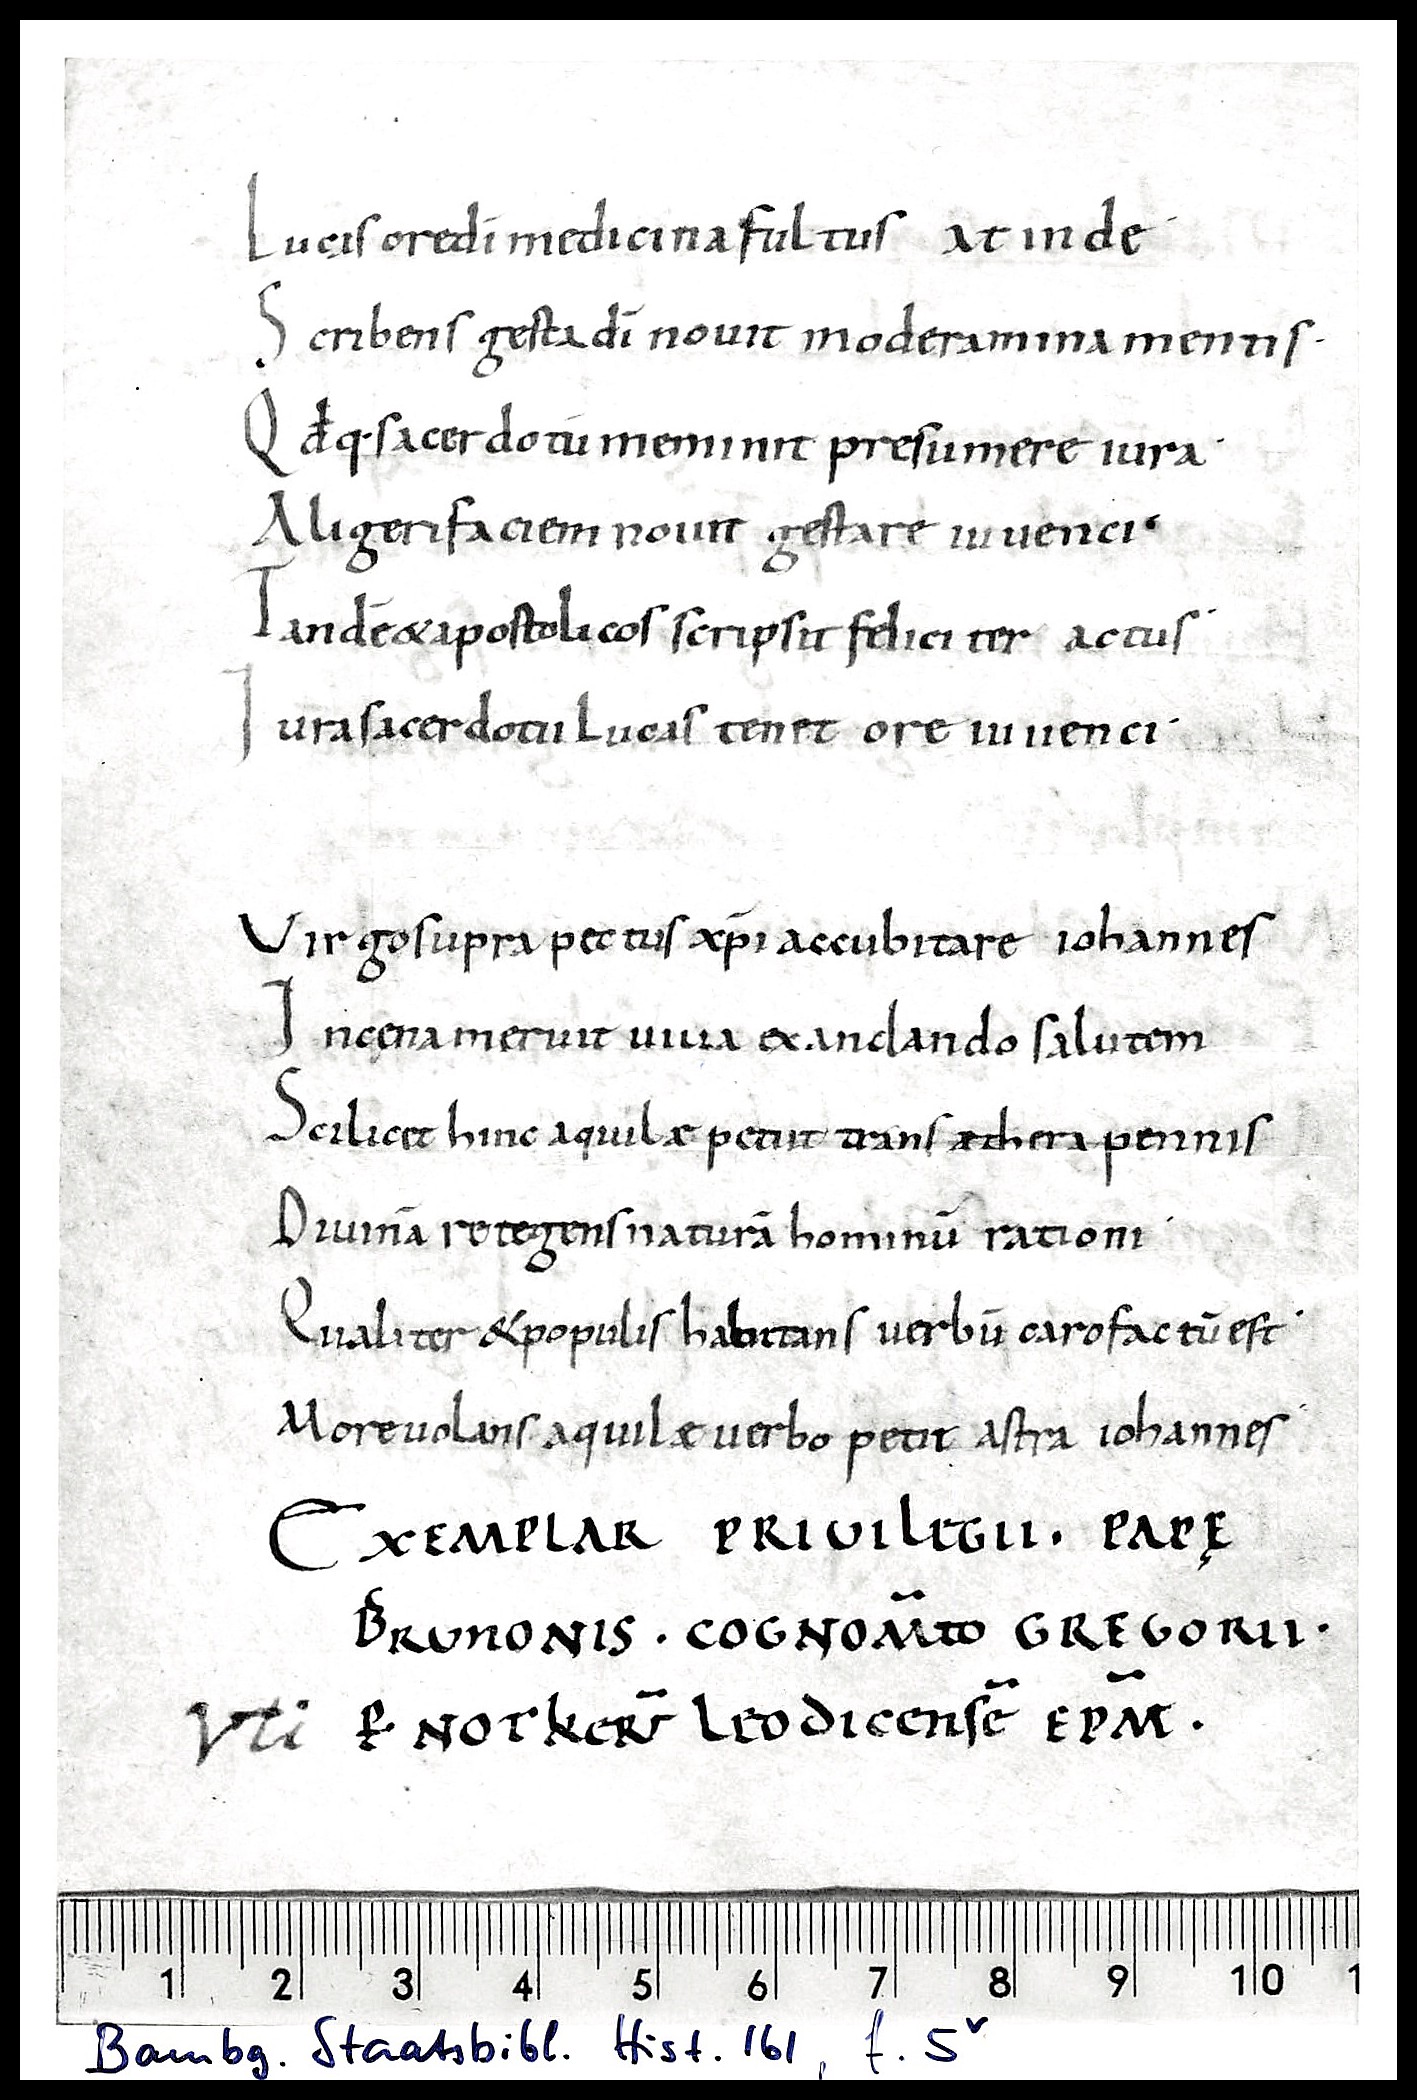 Lucis ore di medicina fultus at inde·
Scribens gesta dī nouit moderamina mentis·
Qđq· sacerdotū meminit presumere iura·
Aligeri faciem nouit gestare iuuenci·
Tandē & apostolicos scripsit feliciter actus·
Iura sacerdotii Lucas tenet ore iuuenci·
Virgo supra pectus xp̄i accubitare iohannes
In cena meruit uiua exanclando salutem
Scilicet hinc aquilæ petiit trans æthera pennis
Diuinā retegens naturā hominū rationi·
Qualiter & populis habitans uerbū caro factū est·
More uolans aquilæ uerbo petit astra iohannes·
EXEMPLAR PRIUILEGII· PAPĘ
BRUNONIS· COGNOM̄TO GREGORII·
Vti ꝑ NOTKERŪ LEODICENSĒ EPM̄·
1 2 3 4 5 6 7 8 9 10 1
Bambg. Staatsbibl. Hist. 161, f. 5v